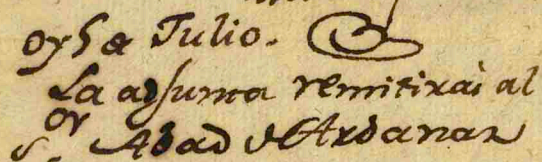 oy 5 de Julio.
La adjunta remitirá al
S.or Abad de Ardanaz